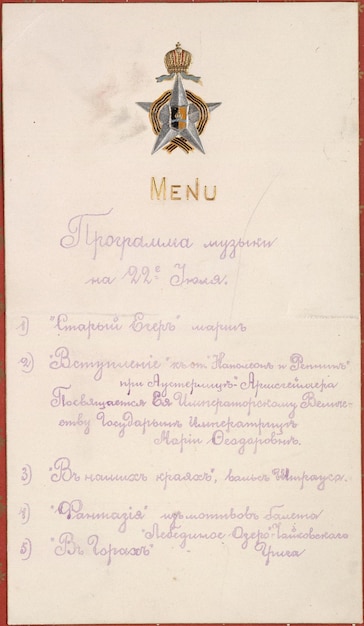 MENU
Программа музыки
на 22е Июля.
1) "Старый Егеръ" маршъ
2) "Вступленіе" къ оп. "Наполеонъ и
при Аустерлицѣ"
Посвящается Ея Императорскому Величе-
ству Государынѣ Императрицѣ
Маріи Ѳеодоровнѣ.
3) "Въ нашихъ краяхъ", вальсъ Штрауса.
4) "Фантазія" изъ мотивовъ балета
"Лебединое Озеро" Чайковскаго
5) "Въ Горахъ" Грига